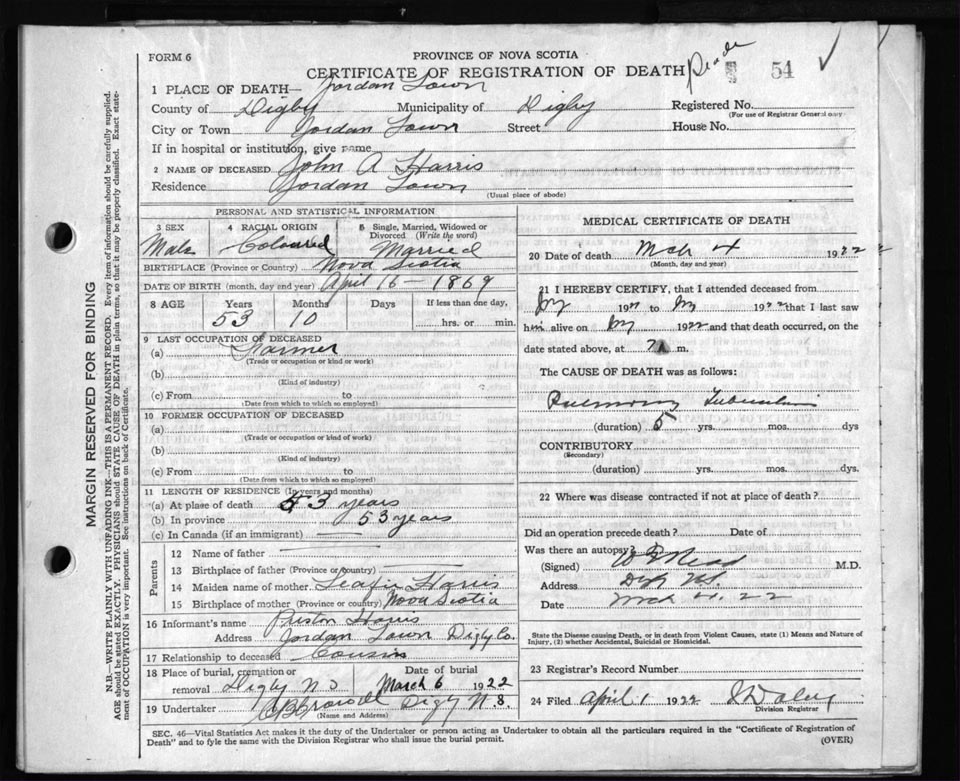 FORM 6
PROVINCE OF NOVA SCOTIA
CERTIFICATE OF REGISTRATION OF DEATH
54
1 PLACE OF DEATH— Jordan Town
County of Digby Municipality of Digby Registered No.
(For use of Registrar General only)
City or Town Jordan Town Street House No.
If in hospital or institution, give name
2 NAME OF DECEASED John A Harris
Residence Jordan Town
(Usual place of abode)
PERSONAL AND STATISTICAL INFORMATION
3 SEX 4 RACIAL ORIGIN 5 Single, Married, Widowed or Divorced (Write the word)
Male Coloured Married
BIRTHPLACE (Province or Country) Nova Scotia
DATE OF BIRTH (month, day and year) April 16 - 1869
8 AGE Years Months Days If less than one day,
53 10 hrs. or min.
9 LAST OCCUPATION OF DECEASED
(a) Farmer
(Trade or occupation or kind or work)
(b)
(Kind of industry)
(c) From to
(Date from which to which so employed)
10 FORMER OCCUPATION OF DECEASED
(a)
(Trade or occupation or kind of work)
(b)
(Kind of industry)
(c) From to
(Date from which to which so employed)
11 LENGTH OF RESIDENCE (In years and months)
(a) At place of death 53 years
(b) In province 53 years
(c) In Canada (if an immigrant)
Parents
12 Name of father
13 Birthplace of father (Province or country)
14 Maiden name of mother Harris
15 Birthplace of mother (Province or country) Nova Scotia
16 Informant's name Harris
Address Jordan Town Digby Co.
17 Relationship to deceased Cousin
18 Place of burial, cremation or removal Digby N S Date of burial March 6 1922
19 Undertaker Digby N.S.
(Name and Address)
MEDICAL CERTIFICATE OF DEATH
20 Date of death Mch 4 1922
(Month, day and year)
21 I HEREBY CERTIFY, that I attended deceased from
1922 to 1922 that I last saw
him alive on 1922 and that death occurred, on the
date stated above, at 7 A m.
The CAUSE OF DEATH was as follows:
Pulmonary Tuberculosis
(duration) 5 yrs. mos. dys
CONTRIBUTORY
(Secondary)
(duration) yrs. mos. dys.
22 Where was disease contracted if not at place of death?
Did an operation precede death? Date of
Was there an autopsy?
(Signed) M.D.
Address
Date Mch 4. 22
State the Disease causing Death, or in death from Violent Causes, state (1) Means and Nature of
Injury, (2) whether Accidental, Suicidal or Homicidal.
23 Registrar's Record Number
24 Filed April 1 1922
Division Registrar
SEC. 46—Vital Statistics Act makes it the duty of the Undertaker or person acting as Undertaker to obtain all the particulars required in the "Certificate of Registration of
Death" and to fyle the same with the Division Registrar who shall issue the burial permit.
(OVER)
MARGIN RESERVED FOR BINDING
N.B.—WRITE PLAINLY WITH UNFADING INK—THIS IS A PERMANENT RECORD. Every item of information should be carefully supplied.
AGE should be stated EXACTLY. PHYSICIANS should STATE CAUSE OF DEATH in plain terms, so that it may be properly classified. Exact statement of OCCUPATION is very important. See instructions on back of Certificate.